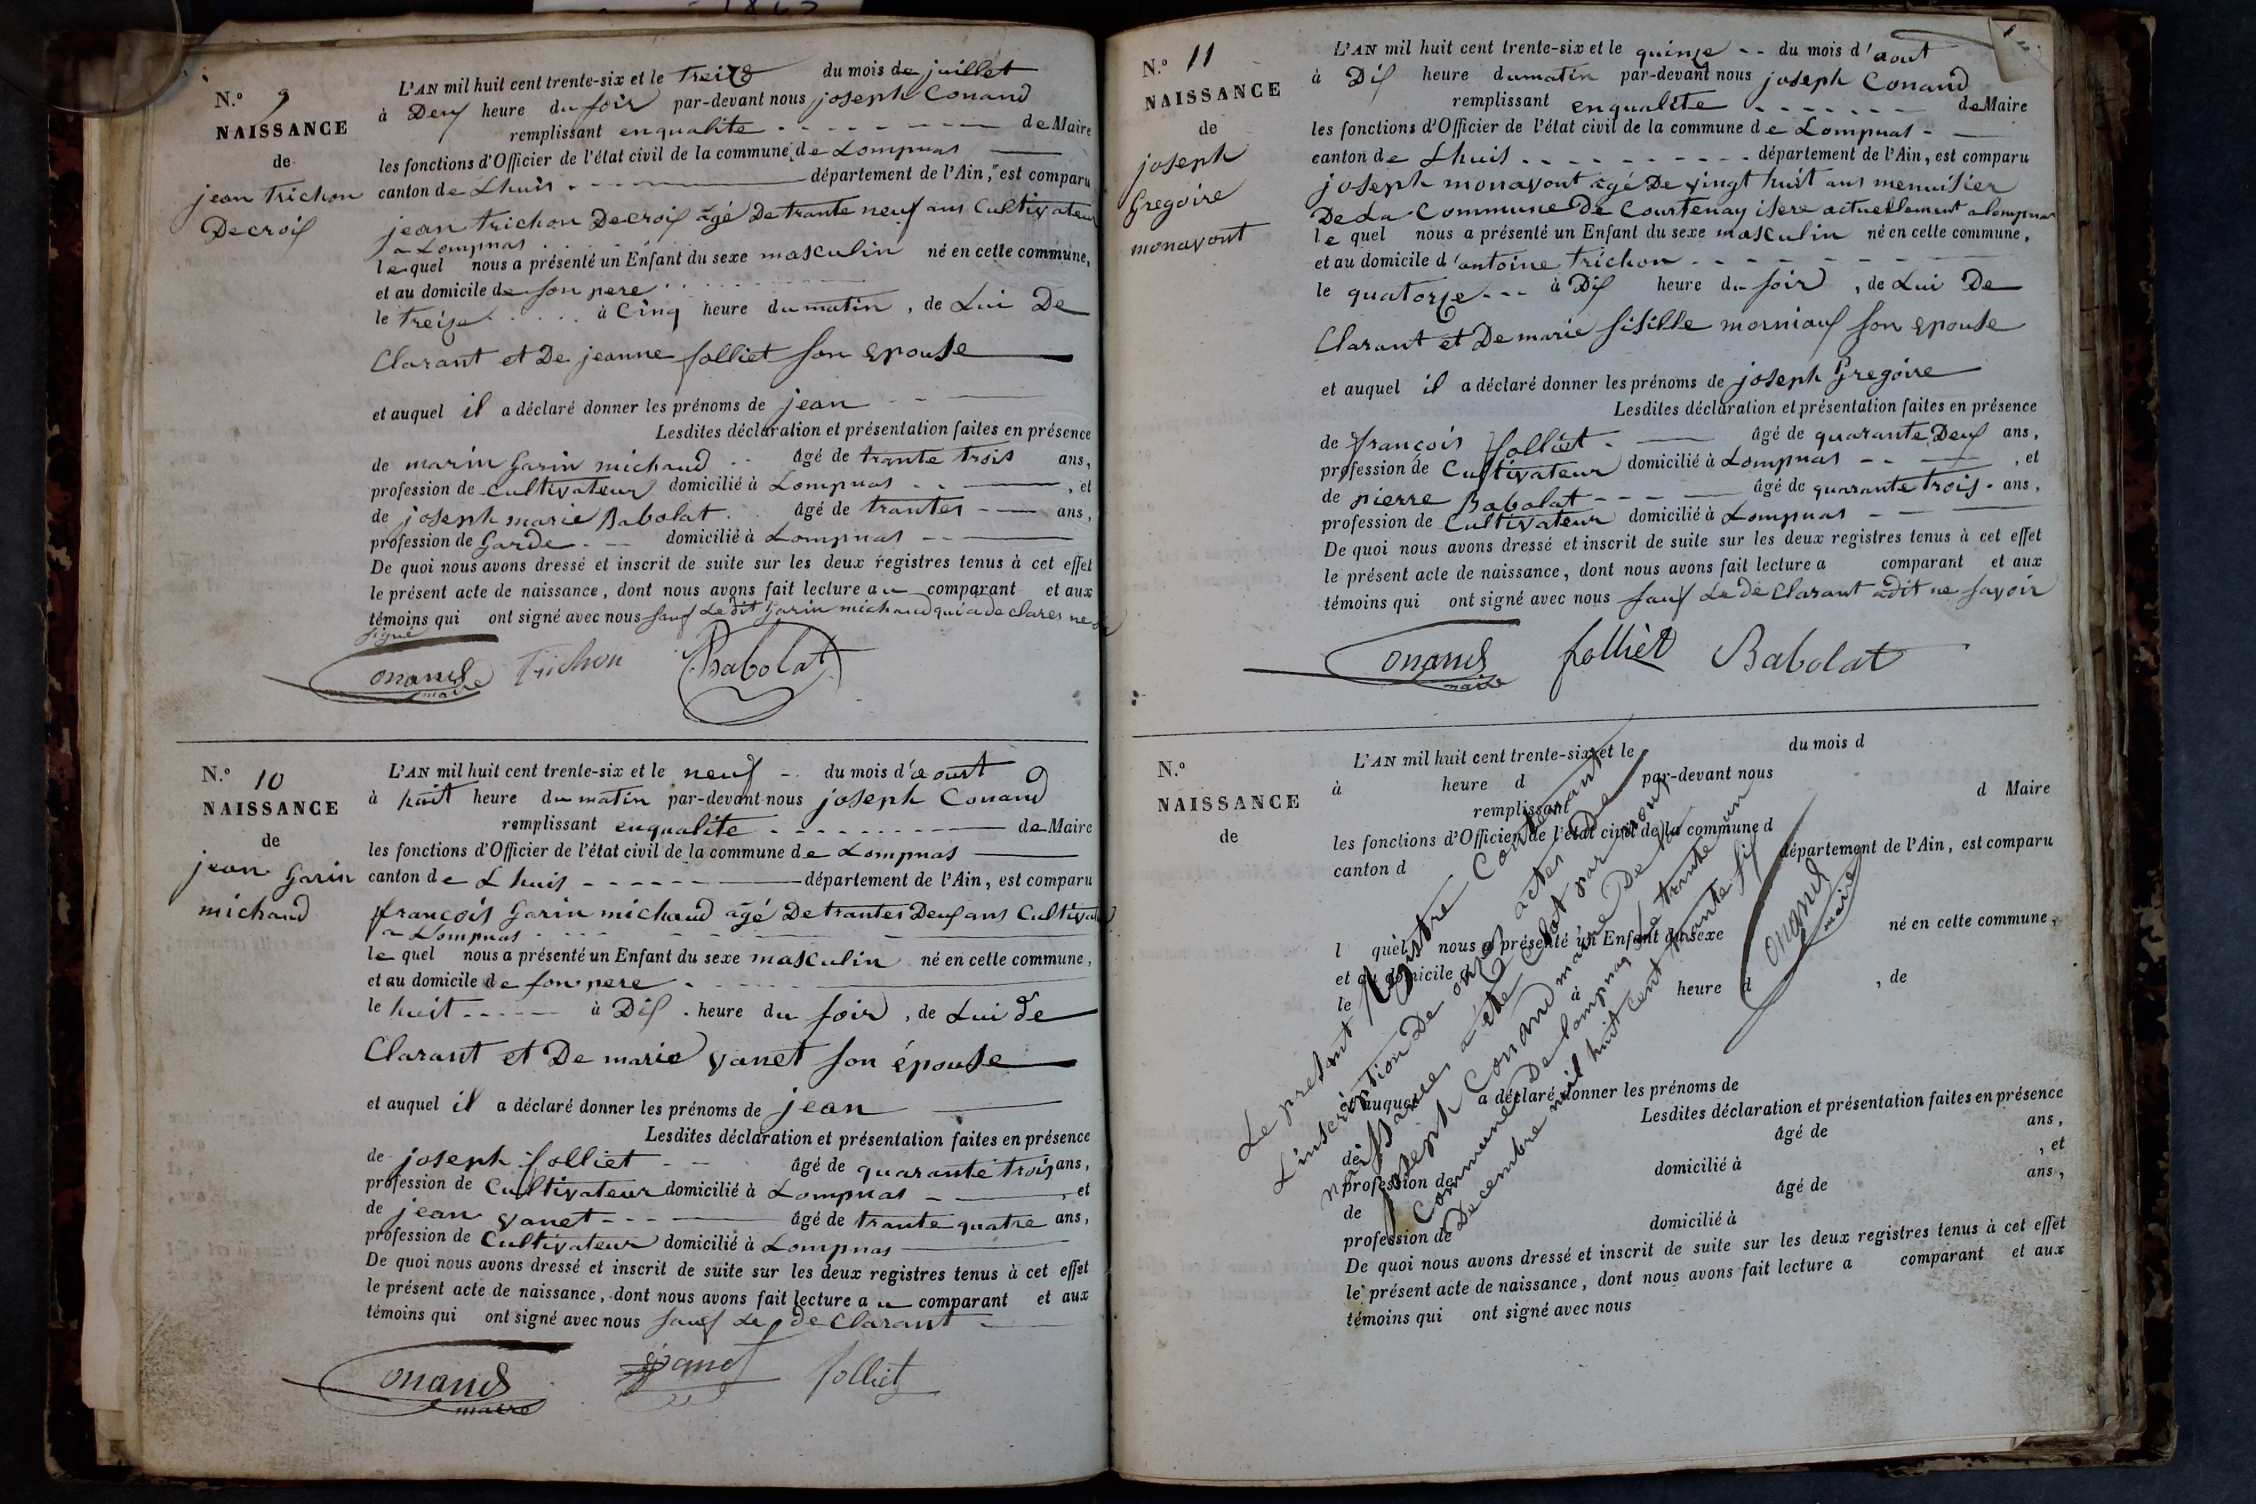 N.º 9
NAISSANCE
de
jean trichon
Decroix
L'AN mil huit cent trente-six et le treize du mois de juillet
à Deux heure du soir par-devant nous joseph Conand
remplissant enqualite de Maire
les fonctions d'Officier de l'état civil de la commune de Lompnas
canton de Lhuis département de l'Ain, est comparu
jean trichon Decroix âgé De trante neuf ans Cultivateur
a Lompnas
le quel nous a présenté un Enfant du sexe masculin né en cette commune,
et au domicile de son pere
le treize à Cinq heure du matin, de Lui De
Clarant et De jeanne folliet son epouse
et auquel il a déclaré donner les prénoms de jean
Lesdites déclaration et présentation faites en présence
de marin Garin michaud âgé de trante trois ans,
profession de cultivateur domicilié à Lompnas, et
de joseph marie Babolat âgé de trantes ans,
profession de Garde domicilié à Lompnas
De quoi nous avons dressé et inscrit de suite sur les deux registres tenus à cet effet
le présent acte de naissance, dont nous avons fait lecture au comparant et aux
témoins qui ont signé avec nous sauf Le dit Garin michaud qui a de clares ne
signé
Conand Trichon Babolat
maire
N.º 10
NAISSANCE
de
jean Garin
michaud
L'AN mil huit cent trente-six et le neuf du mois d'aoust
à huit heure du matin par-devant nous joseph Conand
remplissant enqualite de Maire
les fonctions d'Officier de l'état civil de la commune de Lompnas
canton de Lhuis département de l'Ain, est comparu
francois Garin michaud âgé De trantes Deux ans Cultivat
a Lompnas
le quel nous a présenté un Enfant du sexe masculin né en cette commune,
et au domicile de son pere
le huit à Dix heure du soir, de Lui de
Clarant et De marie vanet son épouse
et auquel il a déclaré donner les prénoms de jean
Lesdites déclaration et présentation faites en présence
de joseph folliet âgé de quarante trois ans,
profession de Cultivateur domicilié à Lompnas, et
de jean vanet âgé de trante quatre ans,
profession de Cultivateur domicilié à Lompnas
De quoi nous avons dressé et inscrit de suite sur les deux registres tenus à cet effet
le présent acte de naissance, dont nous avons fait lecture au comparant et aux
témoins qui ont signé avec nous sauf Le de Clarant
Conand vanet folliet
maire
N.º 11
NAISSANCE
de
joseph
Gregoire
monavont
L'AN mil huit cent trente-six et le quinze du mois d'aout
à Dix heure du matin par-devant nous joseph Conand
remplissant enqualite de Maire
les fonctions d'Officier de l'état civil de la commune de Lompnas
canton de Lhuis département de l'Ain, est comparu
joseph monavont âgé De vingt huit ans menuisier
De La Commune De Courtenay isere actuellement a lompnas
le quel nous a présenté un Enfant du sexe masculin né en cette commune,
et au domicile d'antoine trichon
le quatorze à Dix heure du soir, de Lui De
Clarant et De marie sisille morniaux son epouse
et auquel il a déclaré donner les prénoms de joseph Gregoire
Lesdites déclaration et présentation faites en présence
de françois folliet âgé de quarante Deux ans,
profession de Cultivateur domicilié à Lompnas, et
de pierre Babolat âgé de quarante trois ans,
profession de Cultivateur domicilié à Lompnas
De quoi nous avons dressé et inscrit de suite sur les deux registres tenus à cet effet
le présent acte de naissance, dont nous avons fait lecture a comparant et aux
témoins qui ont signé avec nous sauf Le de Clarant a dit ne savoir
Conand folliet Babolat
maire
N.º
NAISSANCE
de
L'AN mil huit cent trente-six et le du mois d
à heure d par-devant nous
remplissant d Maire
les fonctions d'Officier de l'état civil de la commune d
canton d département de l'Ain, est comparu
l quel nous a présenté un Enfant du sexe né en cette commune,
et au domicile d
le à heure d, de
et auquel a déclaré donner les prénoms de
Lesdites déclaration et présentation faites en présence
de âgé de ans,
profession de domicilié à, et
de âgé de ans,
profession de domicilié à
De quoi nous avons dressé et inscrit de suite sur les deux registres tenus à cet effet
le présent acte de naissance, dont nous avons fait lecture a comparant et aux
témoins qui ont signé avec nous
Le present Registre Contenant
L'inscription De onze actes De
naissances a été Clot par nous
joseph Conand maire De la
Commune De Lompnas Le trante un
Decembre mil huit Cent trante six
Conand
maire